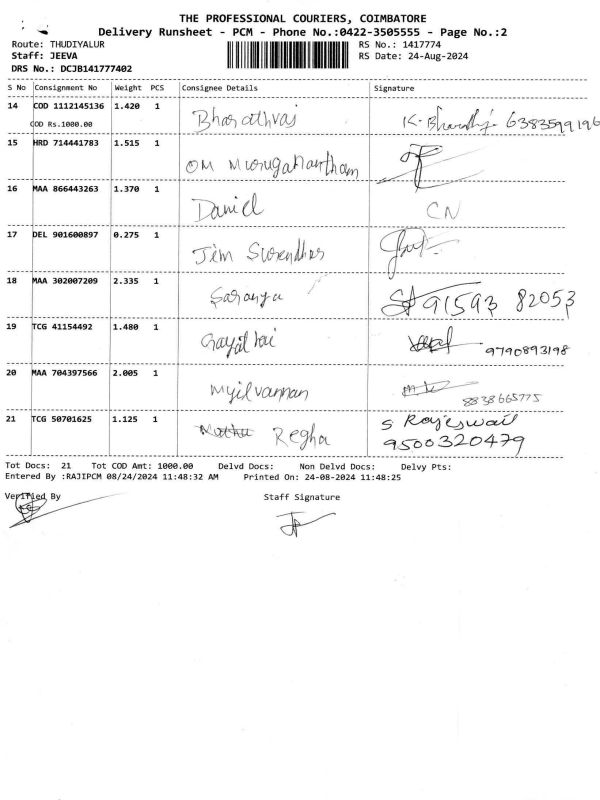 THE PROFESSIONAL COURIERS, COIMBATORE
Delivery Runsheet - PCM - Phone No.:0422-3505555 - Page No.:2
Route: THUDIYALUR RS No.: 1417774
Staff: JEEVA RS Date: 24-Aug-2024
DRS No.: DCJB141777402
S No Consignment No Weight PCS Consignee Details Signature
14 COD 1112145136 1.420 1 Bharathvaj 6383599196
COD Rs.1000.00
15 HRD 714441783 1.515 1 OM Murugahantham
16 MAA 866443263 1.370 1 Daniel CN
17 DEL 901600897 0.275 1 Jim Surendhar
18 MAA 302007209 2.335 1 Saranya 91593 82053
19 TCG 41154492 1.480 1 Gayathri 9790893198
20 MAA 704397566 2.005 1 Myilvannan 8838665775
21 TCG 50701625 1.125 1 Regha S Rajeswari
9500320479
Tot Docs: 21 Tot COD Amt: 1000.00 Delvd Docs: Non Delvd Docs: Delvy Pts:
Entered By :RAJIPCM 08/24/2024 11:48:32 AM Printed On: 24-08-2024 11:48:25
Verified By Staff Signature